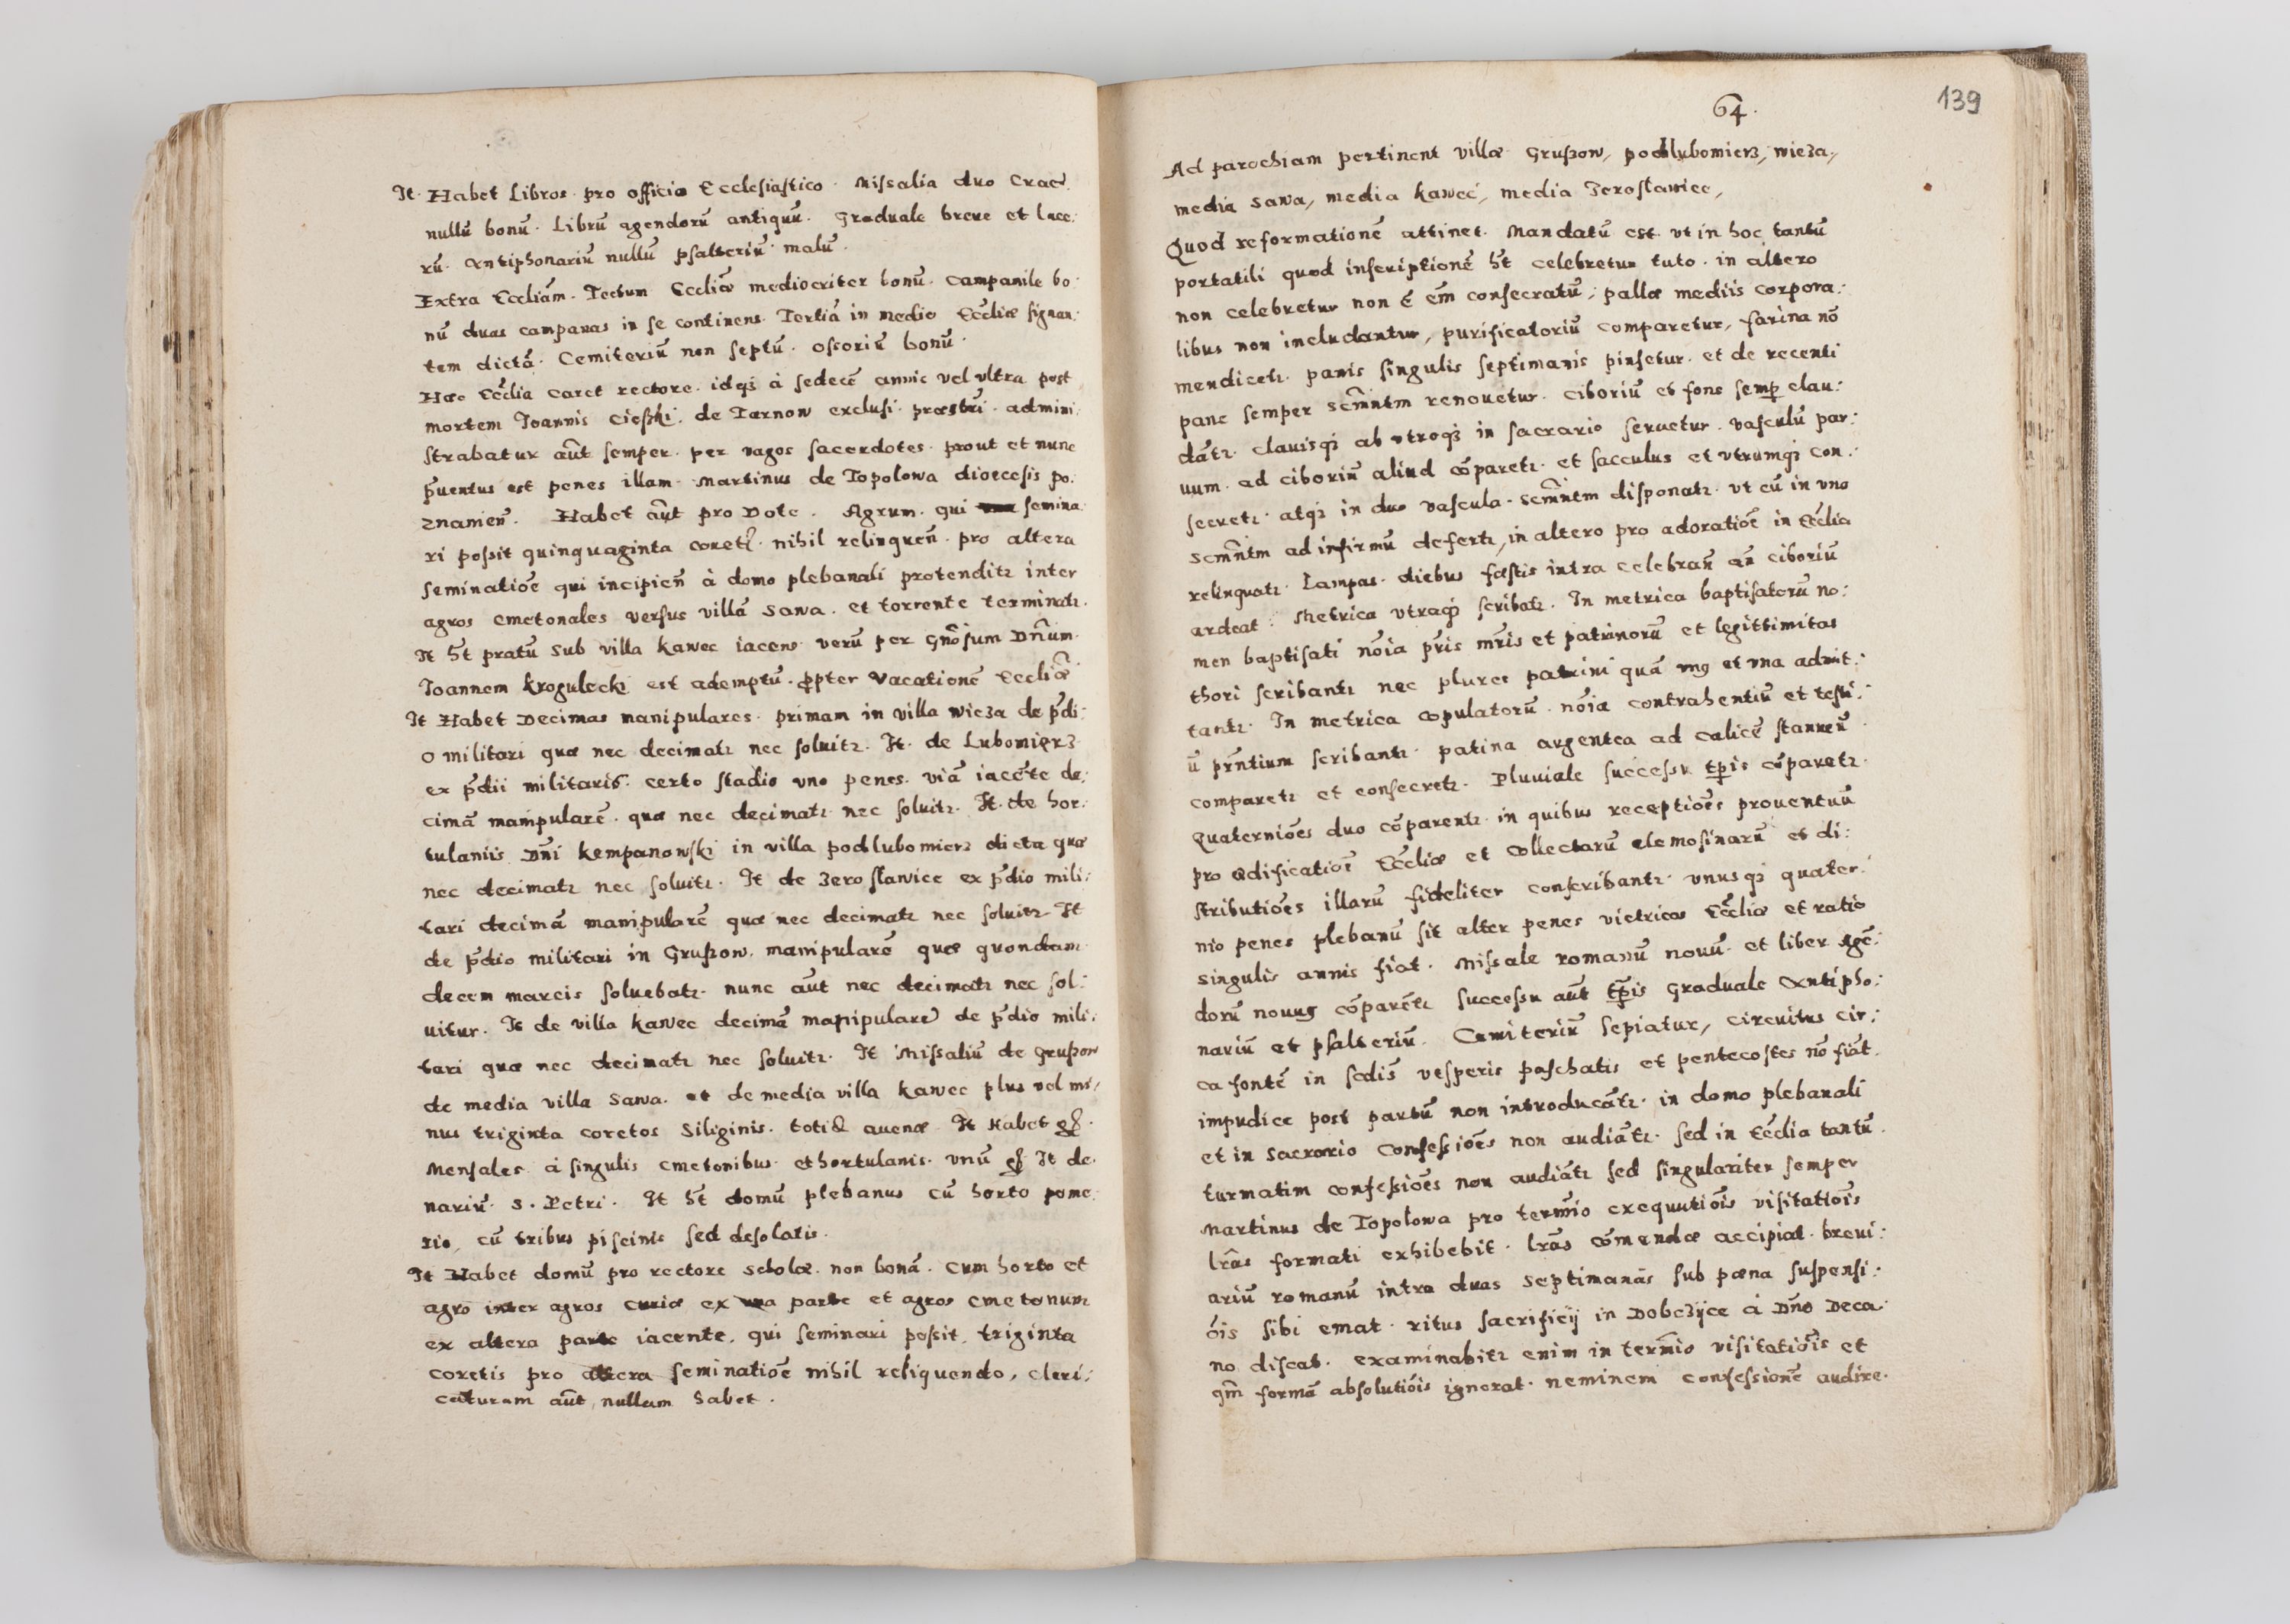 It. Habet Libros pro officio Ecclesiastico. Missalia duo Crac.
nullū bonū. Librū agendorū antiquū. Graduale breue et lace:
rū. Antiphonariū nullū psalteriū malū.
Extra Eccliám. Tectum Eccliæ mediocriter bonū. Campanile bo:
nū duas campanas in se continens. Tertiá in medio Eccliæ signan:
tem dictá. Cemiteriū non septū. ossoriū bonū.
Hæc Ecclia caret rectore. idqꝫ à sedecē annis vel vltra post
mortem Joannis Cieski. de Tarnow exclusi. admini
strabatur aūt semper. per vagos sacerdotes. prout et nunc
p̄uentus est penes illam. Martinus de Topolowa dioecesis po:
znanieñ. Habet aūt pro Dote. Agrum. qui semina
ri possit quinquaginta coret. nihil relinqueñ. pro altera
seminatiōe qui incipieñ à domo plebanali protenditꝛ inter
agros cmetonales versus villā Sawa. et torrente terminatꝛ.
It h̄t pratū sub villa Kawec iacens verū per Gn̄osum Dn̄um
Joannem Krogulecki est ademptū. ꝓpter vacationē Eccliæ
It Habet Decimas manipulares. primam in villa Wieza de p̄di:
o militari quæ nec decimatꝛ nec soluitꝛ. It. de Lubomierz
ex p̄dii militaris. certo stadio vno penes. viā iacēte de:
cimā manipularē. quæ nec decimatꝛ nec soluitꝛ. It. de hor:
tulaniis Dn̄i Kempanowski in villa podlubomierz dicta quæ
nec decimatꝛ nec soluitꝛ. It de Zeroslawice ex p̄dio mili:
tari decimā manipularē quæ nec decimatꝛ nec soluitꝛ It
de p̄dio militari in Gruszow. manipularē quæ quondam
decem marcis soluebatꝛ. nunc aūt nec decimatꝛ nec sol:
uitur. It de villa Kawec decimā manipularē de p̄dio mili:
tari quæ nec decimatꝛ nec soluitꝛ. It Missaliū de Gruszow
de media villa Sawa. et de media villa Kawec plus vel mi:
nus triginta coretos Siliginis. totiḋ auenæ It Habet
Mensales à singulis cmetonibus et hortulanis. vnū It de:
nariū. S. Petri. It h̄t domū plebanus cū horto pome:
rio, cū tribus piscinis sed desolatis.
It Habet domū pro rectore scholæ. non bonā. cum horto et
agro inter agros curiæ ex vna parte et agros cmetonum
ex altera parte iacente, qui seminari possit, triginta
coretis pro altera seminatiōe nihil reliquendo, cleri:
caturam aūt, nullam habet.
64.
139
Ad parochiam pertinent villæ Gruszow, podlubomierz, wieza,
media Sawa, media Kawec, media Jeroslawice,
Quod reformationē attinet. Mandatū est vt in hoc tantū
portatili quod inscriptionē h̄t celebretur tuto. in altero
non celebretur non ē em̄ consecratū, pallæ mediis corpora:
libus non includantur, purificatoriū comparetur, farina nō
mendicetꝛ. panis singulis septimanis pinsetur. et de recenti
pane semper scm̄ntm renouetur. Ciboriū et fons semꝑ clau:
dātꝛ. Clauisqꝫ ab vtroqꝫ in sacrario seruetur. vasculū par:
uum. ad ciboriū aliud cōparetꝛ. et sacculus et vtrumqꝫ con:
secretꝛ. atqꝫ in duo vascula. scm̄ntm disponatꝛ. vt cū in vno
scm̄ntm ad infirmū defertꝛ, in altero pro adoratiōe in Ecclia
relinquatꝛ. Lampas. diebus fæstis intra celebrañ añ ciboriū
ardeat. Metrica vtraqꝫ scribatꝛ. In metrica baptisatorū no:
men baptisati nōia p̄ris mr̄is et patrinorū et legittimitas
thori scribantꝛ nec plures patrini quā vnꝯ et vna admit:
tantꝛ. In metrica copulatorū. nōia contrahentiū et testi:
ū prn̄tium scribantꝛ. patina argentea ad calicē stanneū
comparetꝛ et consecretꝛ. Pluuiale successu tp̄is cōparetꝛ.
Quaterniōes duo cōparentꝛ. in quibus receptiōes prouentuū
pro ædificatiōe Eccliæ et Collectarū elemosinarū et di:
stributiōes illarū fideliter conscribantꝛ. vnusqꝫ quater:
nio penes plebanū sit alter penes vietricos Eccliæ et ratio
singulis annis fiat. Missale romanū nouū. et liber Agē:
dorū nouus cōparētꝛ successu aūt tp̄is Graduale Antipho:
nariū et psalteriū. Cemiteriū sepiatur, circuitus cir:
ca fontē in sedis vesperis paschatis et pentecostes nō fiāt.
impudice post partū non introducātꝛ. in domo plebanali
et in sacrario Confessiōes non audiātꝛ. sed in Ecclia tantū.
turmatim confessiōes non audiātꝛ sed singulariter semper
Martinus de Topolowa pro termīo exequutiōis visitatiōis
lr̄as formati exhibebit. lr̄as cōmendæ accipiat. breui:
ariū romanū intra duas septimanas sub pæna suspensi:
ōis sibi emat. ritus sacrificij in Dobczijce à Dn̄o Deca:
no discat. examinabitꝛ enim in termīo visitatiōis et
qm̄ formā absolutiōis ignorat. neminem confessionē audire.